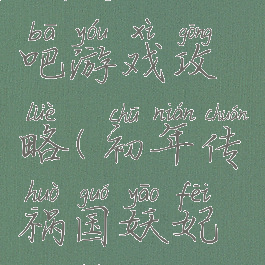 bā yóu xì gōng
吧游戏攻
lüè chū nián chuán
略(初年传
huò guó yāo fēi
祸国妖妃